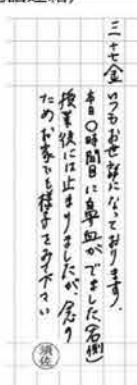 三/十七金 いつもお世話になっております。
本日〇時間目に鼻血がでました(右側)
授業後には止まりましたが、念の
ためお家でも様子をみて下さい
須佐